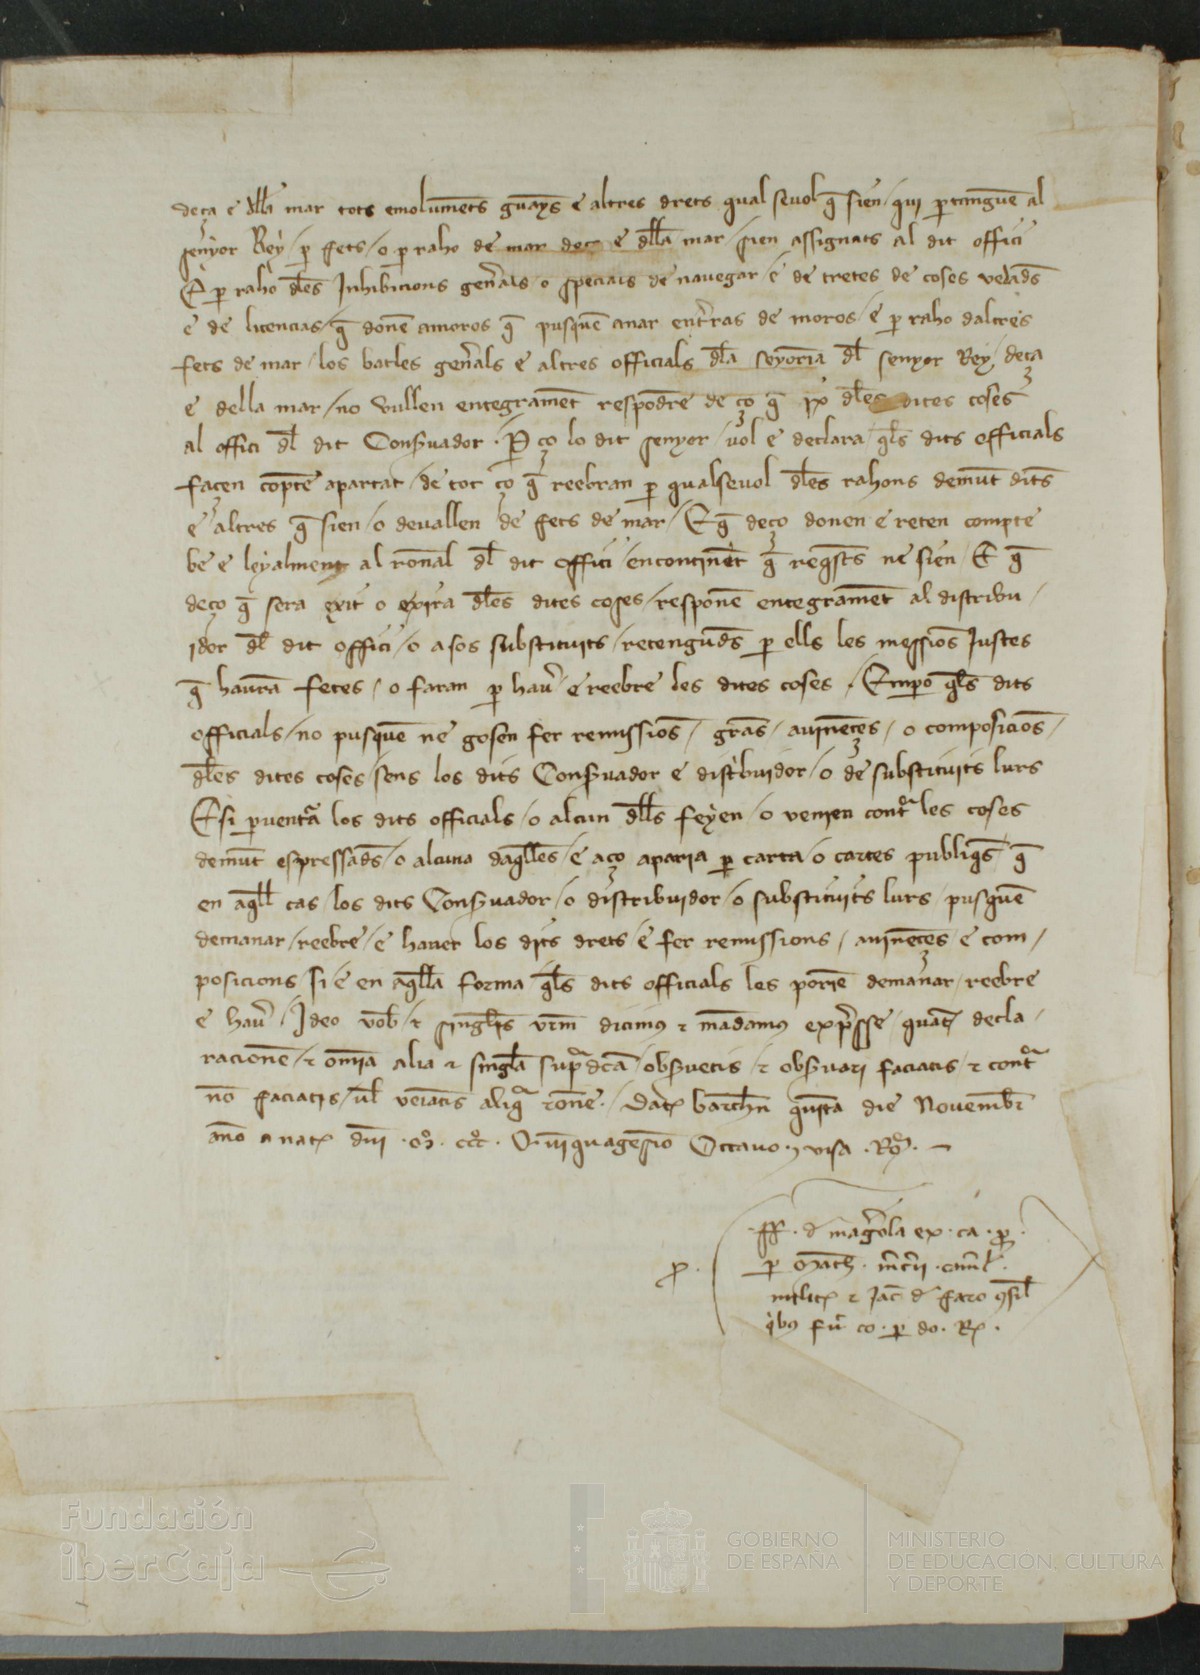 deça e dlla mar tots emolumēts guāys e altres drets qual sevol q̄ sien / qui ptanguē al
senyor Rey / p fets / o p raho de mar deça e dlla mar / sien assignats al dit offici
E p raho dles Inhibicions genals o specials de navegar / e de tretes de coses vedads
e de licencias / q̄ donē amoros q̄ pusquē anar entras de moros / e p raho daltres
fets de mar / los batles genals e altres officials dla seyoria dl senyor Rey / deça
e della mar / no vullen entegramēt respōdre de ço q̄ ix dles dites coses
al offici dl dit Consvador . P ço lo dit senyor / vol e declara / qls dits officials
façen cōpte apartat / de tot ço q̄ reebran p qualsevol dles rahons demūt dits
e altres q̄ sien / o devallen de fets de mar / E q̄ deço donen e reten compte
be e leyalment al ronal dl dit offici / encontinēt q̄ reqsts ne sien / E q̄
deço q̄ sera exit o exira dles dites coses / responē entegramēt al distribu /
idor dl dit offici / o a sos substituits / retenguds p ells les messios Justes
q̄ haurā fetes / o faran p hav e reebre les dites coses . Empo qls dits
officials / no pusquē ne gosen fer remissiōs / gras / avinēces / o composiciōs /
dles dites coses / sens los dits Consvador e distbuidor / o de substituits lurs
E si pventa los dits officials / o alcun dlls feyen / o venien cont les coses
demūt expressads / o alcuna daqlles / e aço aparia p carta / o cartes publiqs / q̄
en aqll cas / los dits Consvador / o distribuidor / o substituits lurs / pusquē
demanar / reebre / e haver los dits drets / e fer remissions / avinēces / e com /
posicions / si e en aqlla forma / qls dits officials les poriē demanar / reebre
e hav / Ideo vob / et singlis vrm dicimus et mādamus expsse / quat decla /
racionē / et omia alia et singla supdca / obsvetis / et obsvari faciatis / et cont
nō faciatis / ul veiatis aliq rone . Dat barchn qinta die Novembr
ano a nat dni . mo . ccc . Qinquagesio Octavo . visa . Ro .
p .
. ff . d magola ex . ca . p .
p math . mcii . caml .
milit et Jac d faro csil
qbus fu co . p do . R .